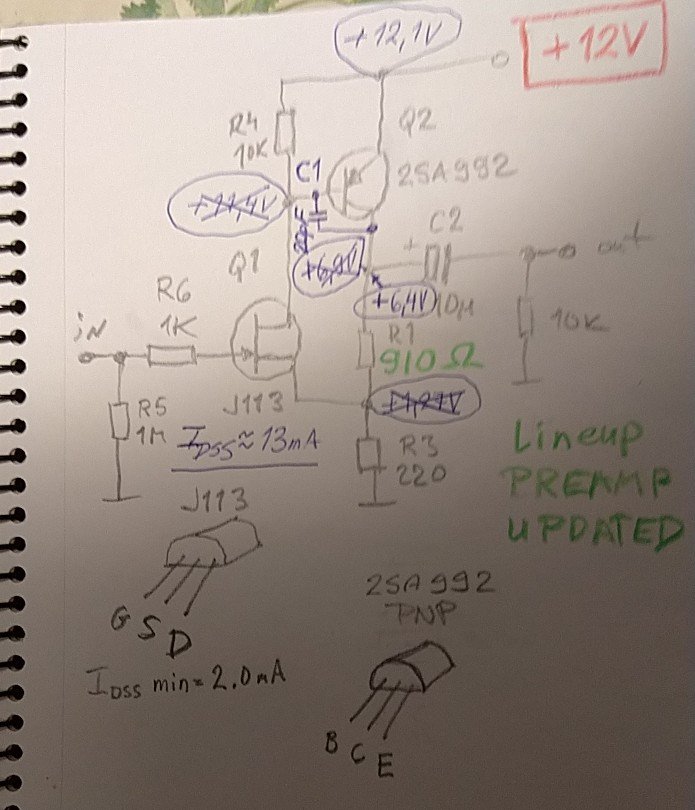 +12,1V
+12V
R4
10K
Q2
C1
2SA992
+11,4V
C2
+
out
Q1
+6,9V
+6,4V
10µ
R6
1K
iN
R1
910Ω
10K
R5
1M
J113
+1,27V
I DSS ≈ 13mA
R3
220
Lineup
PREAMP
UPDATED
J113
G S D
I DSS min = 2.0mA
2SA992
PNP
B C E